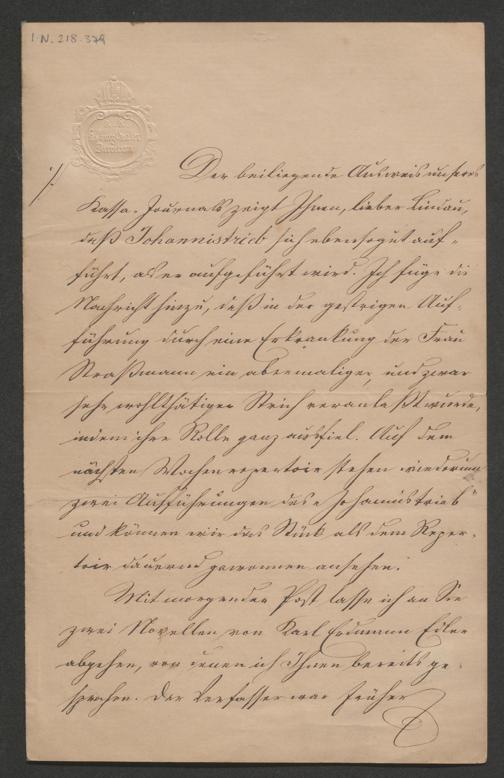 I.N. 218.379
./.
Der beiliegende Ausweis unseres
Kassa-Journals zeigt Ihnen, lieber Lindau,
daß Johannistrieb sich ebensogut auf-
führt, als er aufgeführt wird. Ich füge die
Nachricht hinzu, daß in der gestrigen Auf-
führung durch eine Erkrankung der Frau
Straßmann ein abermaliger, und zwar
sehr wohlthätiger Strich veranlaßt wurde,
indem ihre Rolle ganz ausfiel. Auf dem
nächsten Wochenrepertoir stehen wiederum
zwei Aufführungen des „Johannistrieb"
und können wir das Stück als dem Reper-
toir dauernd gewonnen ansehen.
Mit morgender Post lasse ich an Sie
zwei Novellen von Karl Erdmann Edler
abgehen, von denen ich Ihnen bereits ge-
sprochen. Der Verfasser war früher